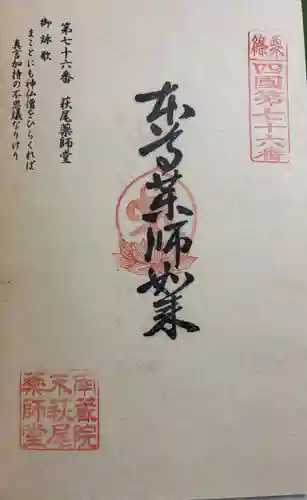 篠栗
四國第七十六番
本尊薬師如来
第七十六番 萩尾薬師堂
御詠歌
まことにも神仏僧をひらくれば
真言加持の不思議なりけり
南蔵院
示萩尾
薬師堂